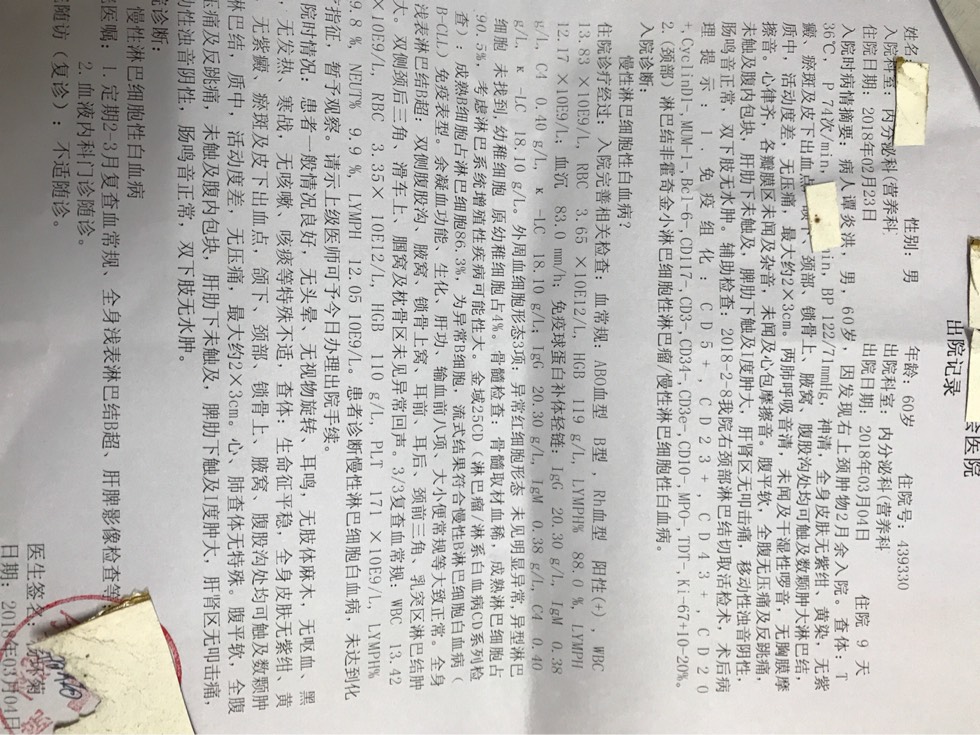 医院
出院记录
姓名: 性别: 男 年龄: 60岁 住院号: 439330
入院科室: 内分泌科(营养科 出院科室: 内分泌科(营养科
住院日期: 2018年02月23日 出院日期: 2018年03月04日 住院 9 天
入院时病情摘要: 病人谭炎洪, 男, 60岁, 因发现右上颈肿物2月余入院。查体: T
36℃, P 74次/min, in, BP 122/71mmHg, 神清, 全身皮肤无紫绀、黄染, 无紫
癜、瘀斑及皮下出血点 颈部、锁骨上、腋窝、腹股沟处均可触及数颗肿大淋巴结,
质中, 活动度差, 无压痛, 最大约2×3cm。两肺呼吸音清, 未闻及干湿性啰音, 无胸膜摩
擦音。心律齐, 各瓣膜区未闻及杂音, 未闻及心包摩擦音。腹平软, 全腹无压痛及反跳痛,
未触及腹内包块, 肝肋下未触及, 脾肋下触及I度肿大, 肝肾区无叩击痛, 移动性浊音阴性,
肠鸣音正常, 双下肢无水肿。辅助检查: 2018-2-8我院右颈部淋巴结切取活检术, 术后病
理提示: 1.免疫组化: CD5+, CD23+, CD43+, CD20
+, CyclinD1-, MUM-1-Bcl-6-, CD117-, CD3-, CD34-, CD3e-, CD10-, MPO-, TDT-, Ki-67+10-20%。
2. (颈部) 淋巴结非霍奇金小淋巴细胞性淋巴瘤/慢性淋巴细胞性白血病。
入院诊断:
慢性淋巴细胞性白血病?
住院诊疗经过: 入院完善相关检查: 血常规: ABO血型 B型, Rh血型 阳性(+), WBC
13.83 ×10E9/L, RBC 3.65 ×10E12/L, HGB 119 g/L, LYMPH% 88.0 %, LYMPH
12.17 ×10E9/L; 血沉 83.0 mm/h; 免疫球蛋白补体轻链: IgG 20.30 g/L, IgM 0.38
g/L, C4 0.40 g/L, κ -LC 18.10 g/L; IgG 20.30 g/L, IgM 0.38 g/L, C4 0.40
g/L, κ -LC 18.10 g/L。外周血细胞形态3项: 异常红细胞形态 未见明显异常, 异型淋巴
细胞 未找到, 幼稚细胞 原幼稚细胞占4%。骨髓检查: 骨髓取材血稀, 成熟淋巴细胞占
90.5%, 考虑淋巴系统增殖性疾病可能性大。金域25CD (淋巴瘤/淋系白血病CD系列检
查): 成熟B细胞占淋巴细胞86.3%, 为异常B细胞, 流式结果符合慢性B淋巴细胞白血病 (
B-CLL) 免疫表型。余凝血功能、生化、肝功、输血前八项、大小便常规等大致正常。全身
浅表淋巴结B超: 双侧腹股沟、腋窝、锁骨上窝、耳前、耳后、颈前三角、乳突区淋巴结肿
大。双侧颈后三角、滑车上、腘窝及枕骨区未见异常回声。3/3复查血常规: WBC 13.42
×10E9/L, RBC 3.35× 10E12/L, HGB 110 g/L, PLT 171 ×10E9/L, LYMPH%
9.8 %, NEUT% 9.9 %, LYMPH 12.05 10E9/L。患者诊断慢性淋巴细胞白血病, 未达到化
疗指征, 暂予观察。请示上级医师可予今日办理出院手续。
院时情况: 患者一般情况良好, 无头晕、无视物旋转、耳鸣, 无肢体麻木, 无呕血、黑
, 无发热、寒战, 无咳嗽、咳痰等特殊不适, 查体: 生命征平稳, 全身皮肤无紫绀、黄
、无紫癜、瘀斑及皮下出血点, 颌下、颈部、锁骨上、腋窝、腹股沟处均可触及数颗肿
淋巴结, 质中, 活动度差, 无压痛, 最大约2×3cm。心、肺查体无特殊。腹平软, 全腹
压痛及反跳痛, 未触及腹内包块, 肝肋下未触及, 脾肋下触及I度肿大, 肝肾区无叩击痛,
动性浊音阴性, 肠鸣音正常, 双下肢无水肿。
诊断:
慢性淋巴细胞性白血病
医嘱: 1. 定期2-3月复查血常规、全身浅表淋巴结B超、肝脾影像检查等
2. 血液内科门诊随诊。
随访 (复诊): 不适随诊。
医生签名:
日期: 2018年03月04日